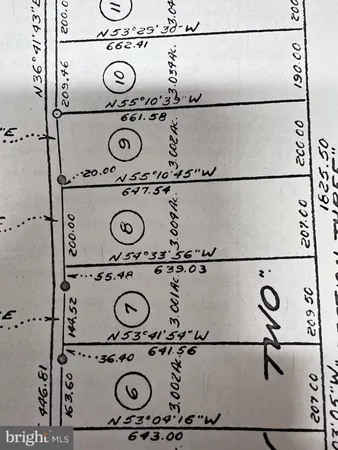 11
3.04
200.00
200
N 53°29'30"W
662.41
N36°41'43"E
209.46
10
3.054Ac.
190.00
N 55°10'39"W
661.58
"E
9
3.002Ac.
200.00
20.00
N 55°10'45"W
647.54
1625.50
200.00
8
3.009Ac.
207.00
N 54°33'56"W
639.03
55.48
"E
144.52
7
3.001Ac.
209.50
N 53°41'54"W
641.56
TWO"
36.40
446.81
163.60
6
3.002Ac.
207.00
03'05"W
N 53°04'16"W
643.00
bright MLS